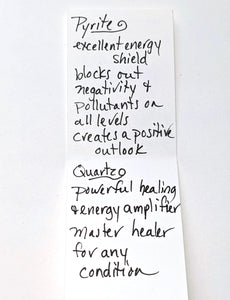 Pyrite
excellent energy
shield
blocks out
negativity &
pollutants on
all levels
creates a positive
outlook
Quartz
powerful healing
& energy amplifier
Master healer
for any
condition